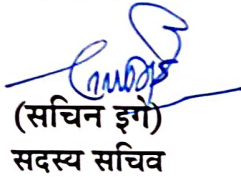 (सचिन इगे)
सदस्य सचिव